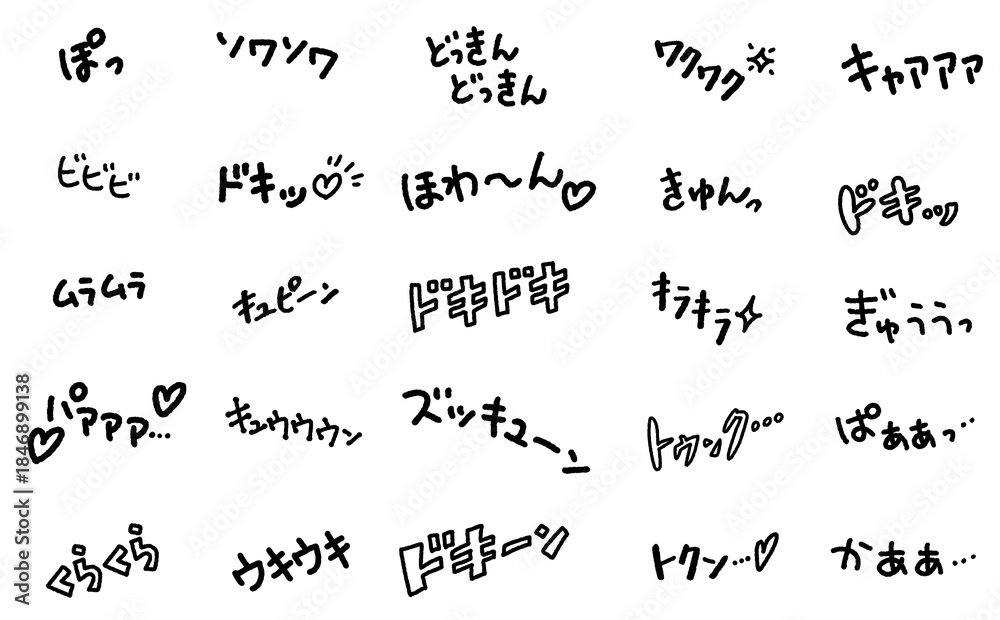 ぽっ
ソワソワ
どっきん
どっきん
ワクワク
キャアアア
ビビビ
ドキッ♡
ほわ〜ん♡
きゅんっ
ドキッ
ムラムラ
キュピーン
ドキドキ
キラキラ
ぎゅううっ
♡パァァァ…♡
キュウウウン
ズッキューン
トゥンク…
ぱぁぁっ…
くらくら
ウキウキ
ドキーン
トクン…♡
かぁぁ…
Adobe Stock | #1846899138